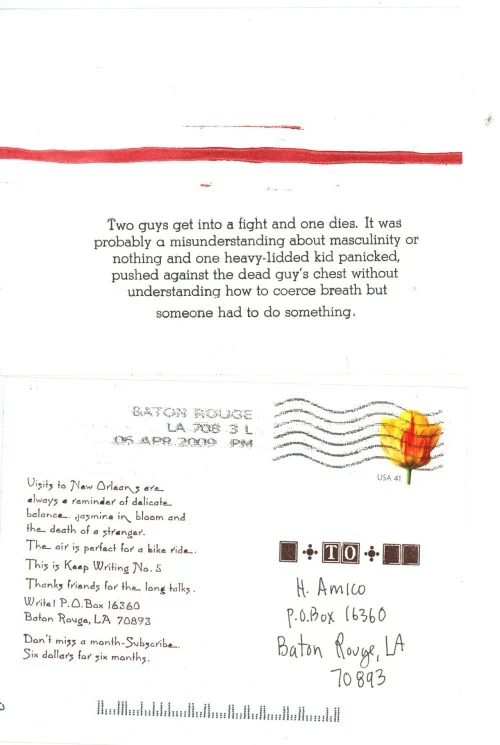 Two guys get into a fight and one dies. It was
probably a misunderstanding about masculinity or
nothing and one heavy-lidded kid panicked,
pushed against the dead guy's chest without
understanding how to coerce breath but
someone had to do something.
BATON ROUGE
LA 708 3 L
06 APR 2009 PM
USA 41
Visits to New Orleans are
always a reminder of delicate
balance. jasmine in bloom and
the death of a stranger.
The air is perfect for a bike ride.
This is Keep Writing No. 5
Thanks friends for the long talks.
Write! P.O.Box 16360
Baton Rouge, LA 70893
Don't miss a month-Subscribe.
Six dollars for six months.
TO
H. Amico
P.O.Box 16360
Baton Rouge, LA
70893